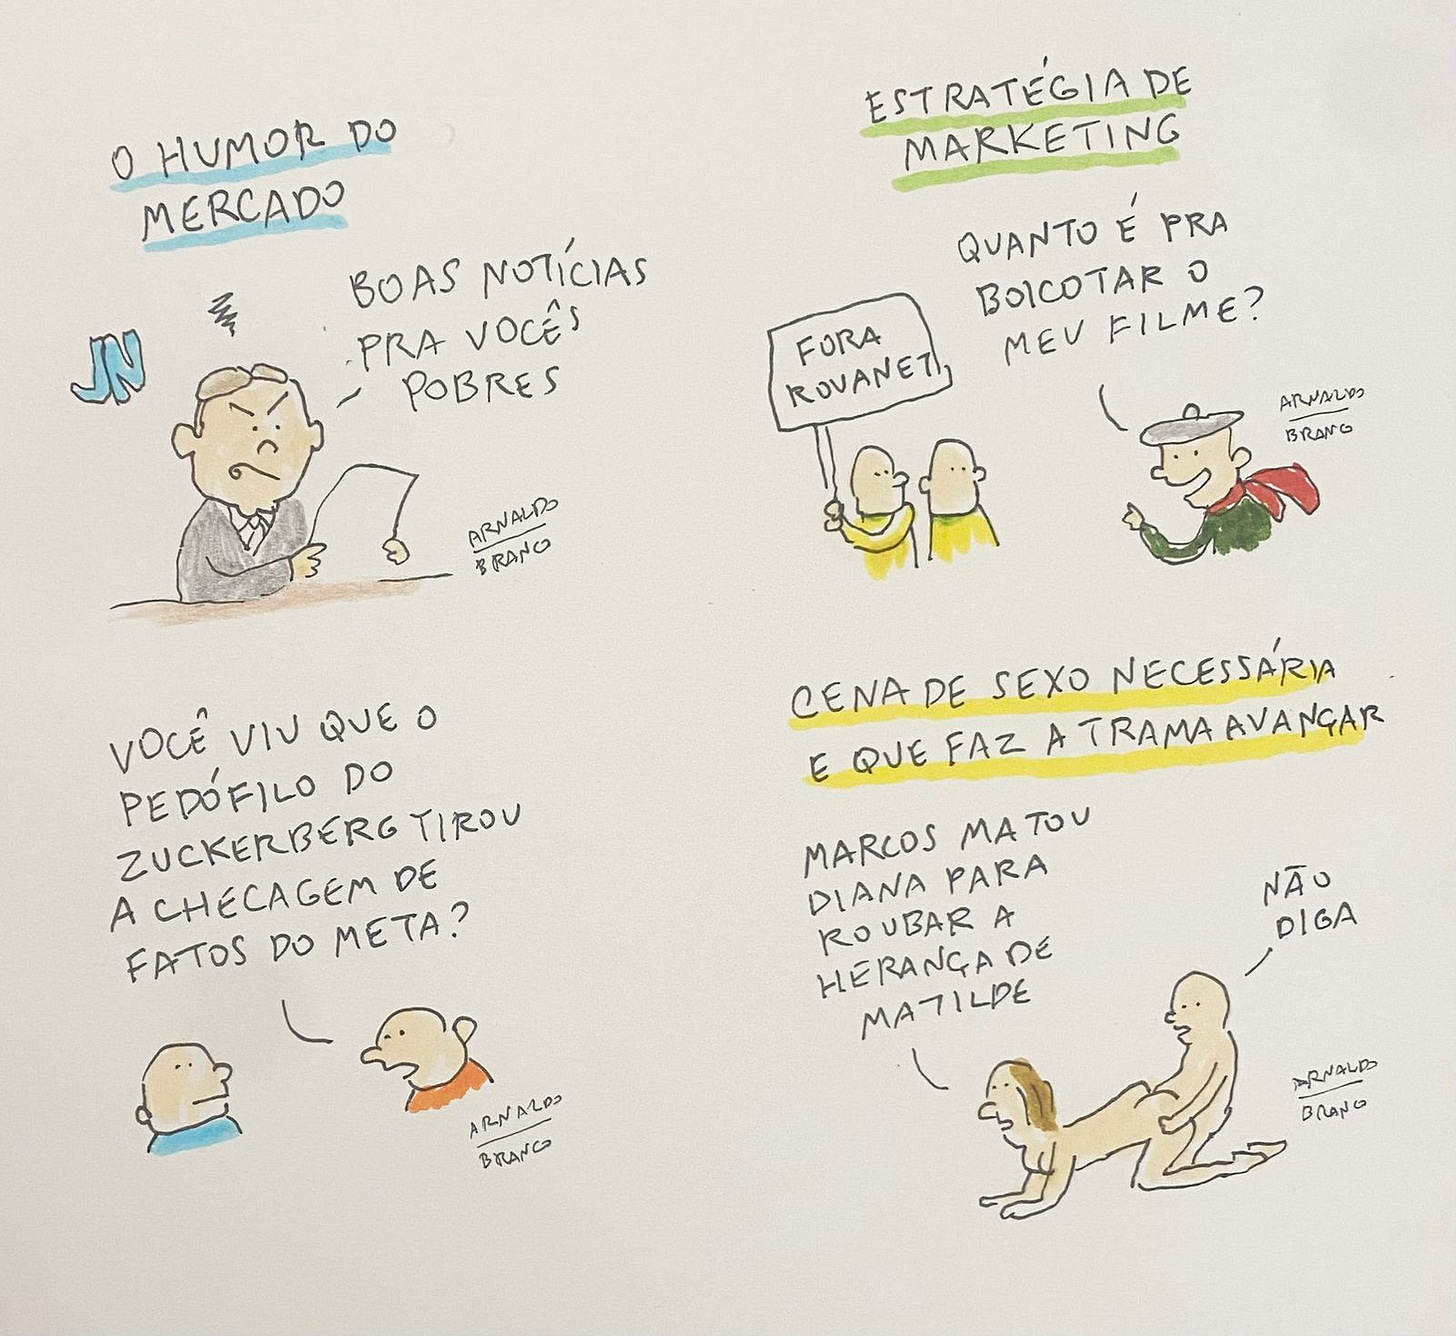 O HUMOR DO
MERCADO
BOAS NOTÍCIAS
PRA VOCÊS
POBRES
JN
ARNALDO
BRANCO
ESTRATÉGIA DE
MARKETING
QUANTO É PRA
BOICOTAR O
MEU FILME?
FORA
ROUANET!
ARNALDO
BRANCO
VOCÊ VIU QUE O
PEDÓFILO DO
ZUCKERBERG TIROU
A CHECAGEM DE
FATOS DO META?
ARNALDO
BRANCO
CENA DE SEXO NECESSÁRIA
E QUE FAZ A TRAMA AVANÇAR
MARCOS MATOU
DIANA PARA
ROUBAR A
HERANÇA DE
MATILDE
NÃO
DIGA
ARNALDO
BRANCO